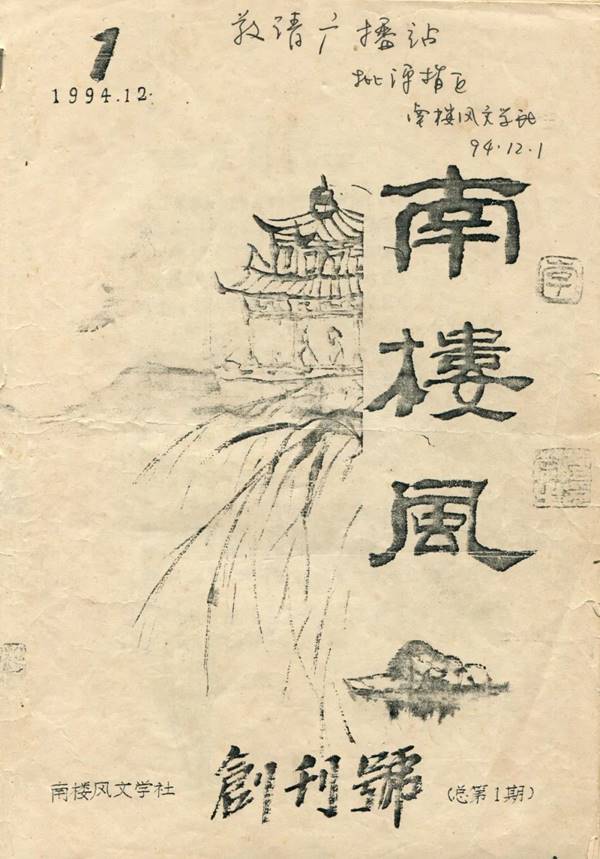 1
1994.12.
敬请广播站
批评指正
南楼风文学社
94.12.1
南樓風
創刊號
南楼风文学社
(总第1期)